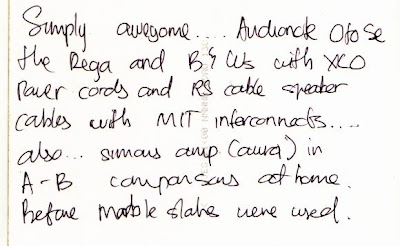 Simply awesome.... Audionote Oto Se
the Rega and B&Ws with XLO
Power cords and RS cable speaker
cables with MIT interconnects....
also... simons amp (aura) in
A-B comparisons at home.
Before marble slabs were used.